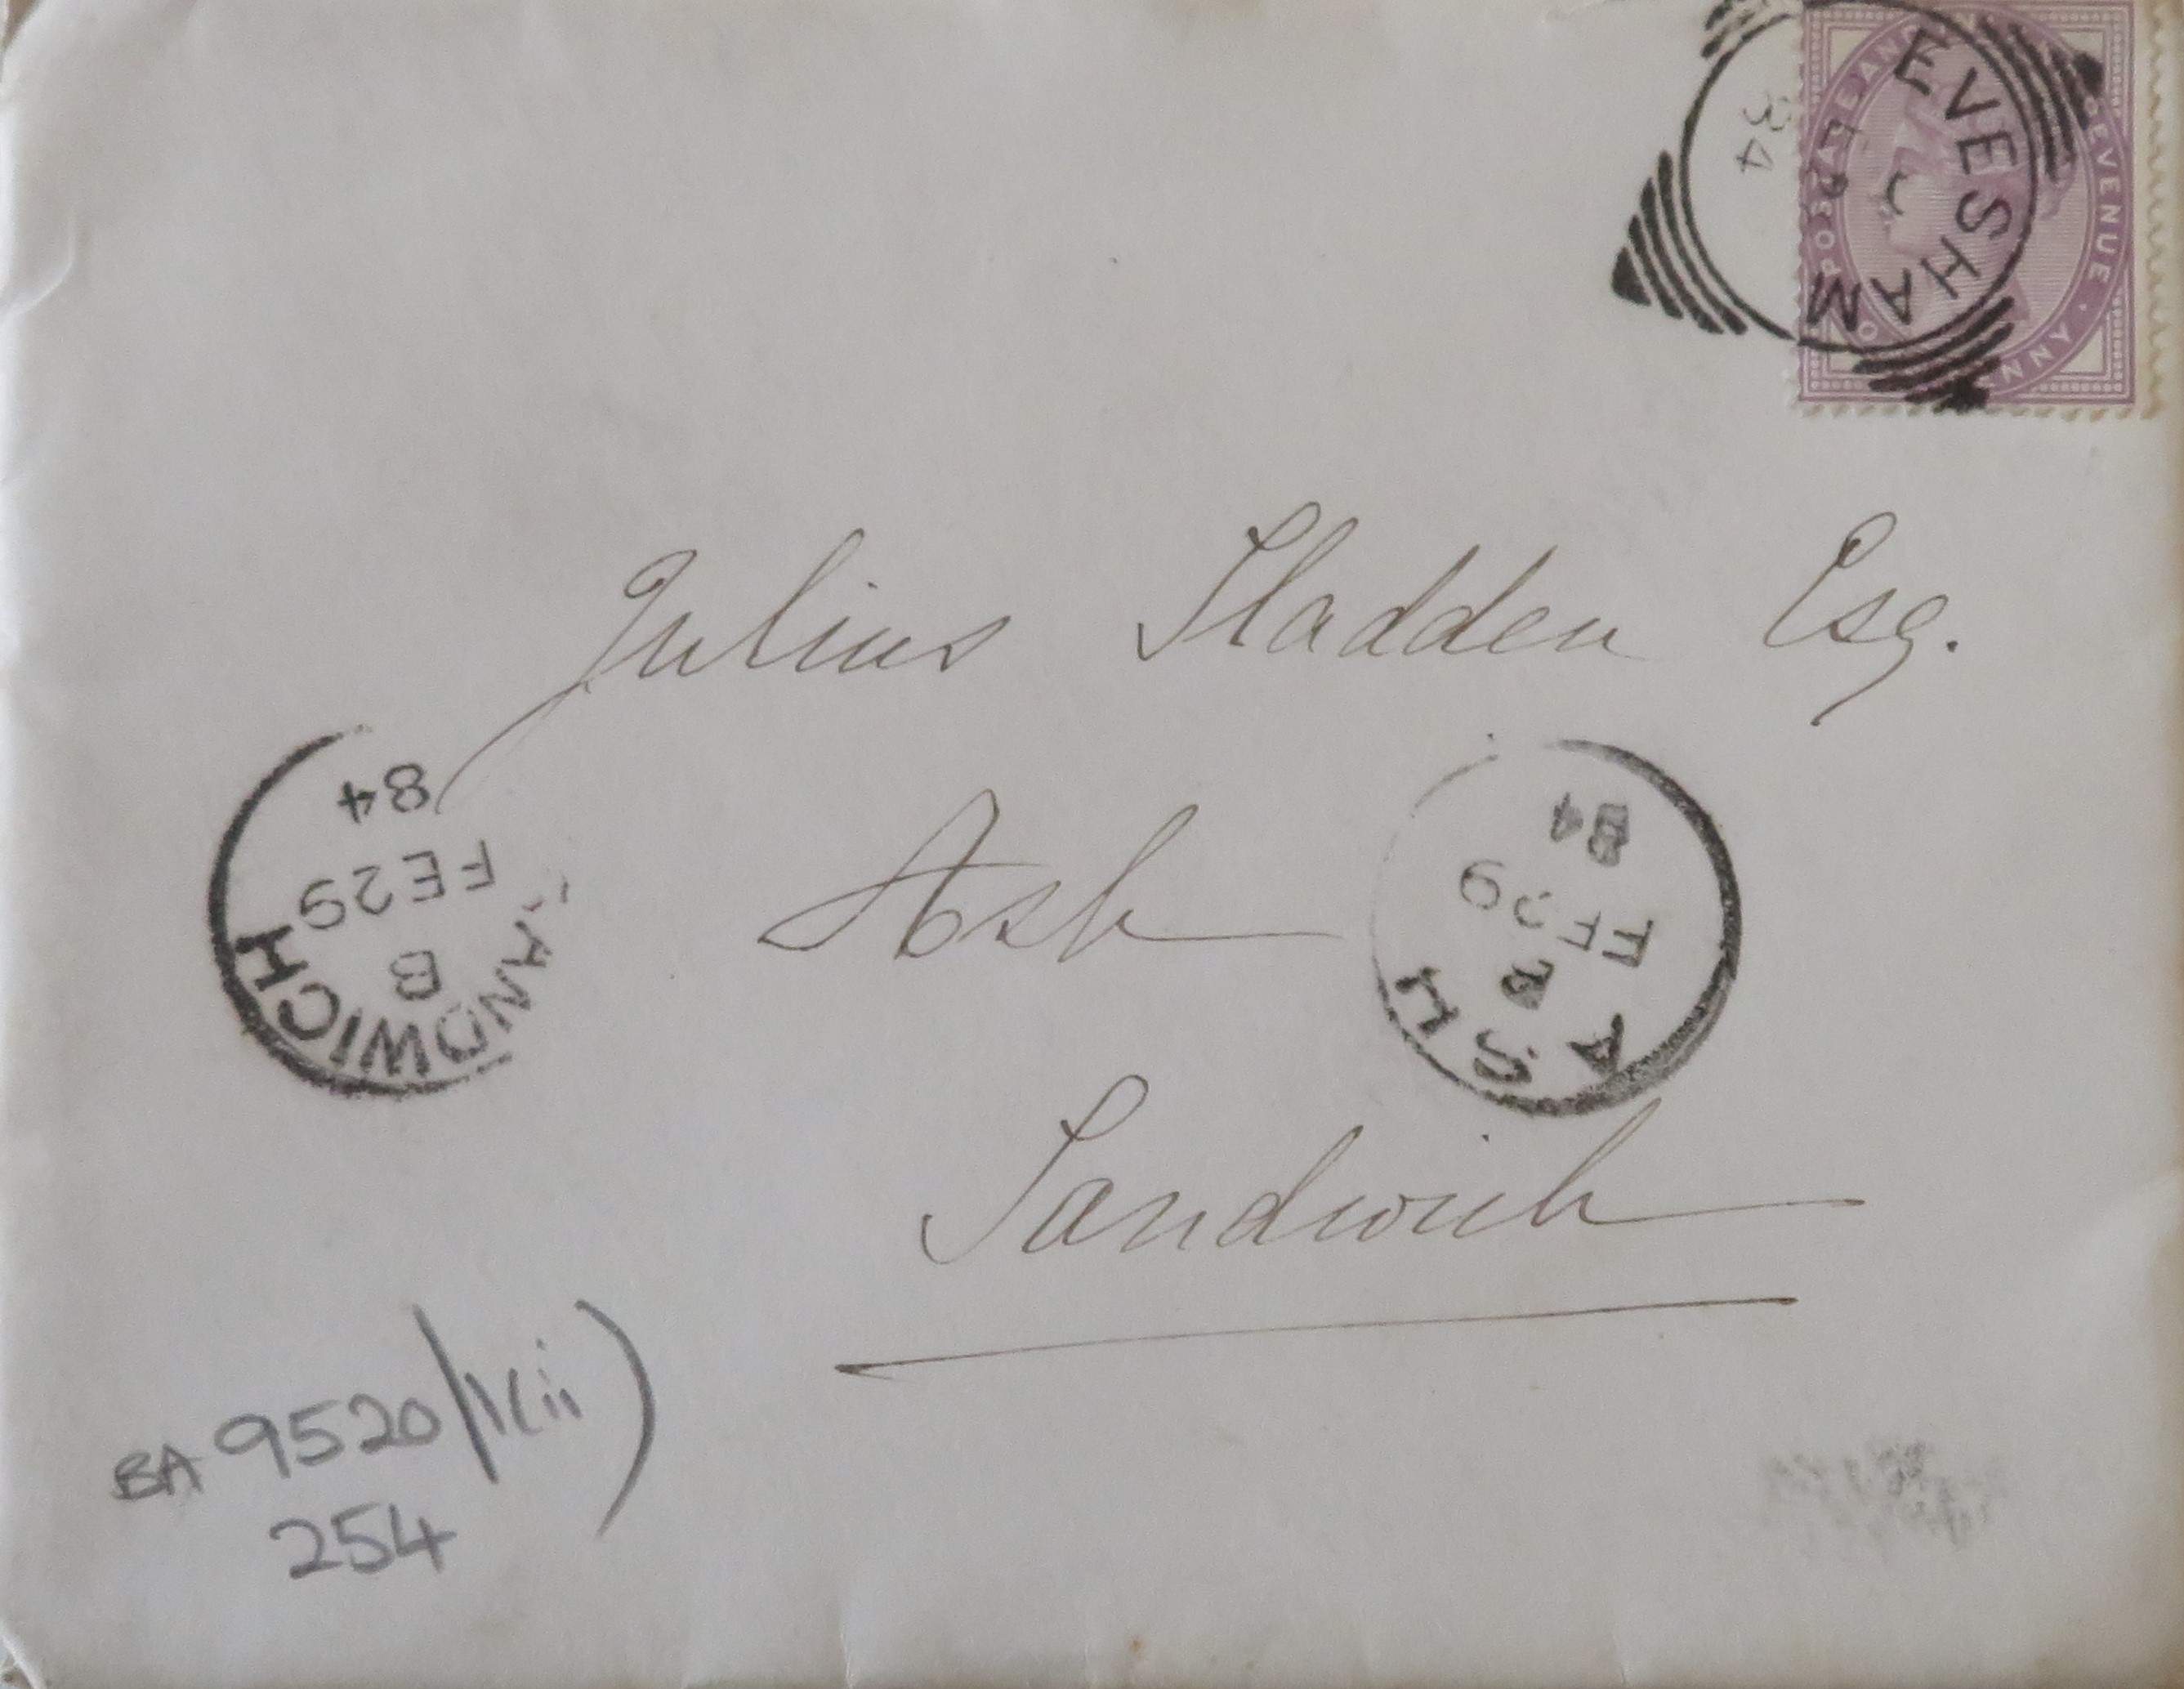 EVESHAM
84
POSTAGE AND REVENUE
PENNY
Julius Sladden Esq.
84
FE 29
B
SANDWICH
Ash
84
FE 29
B
ASH
Sandwich
BA 9520/1(ii)
254